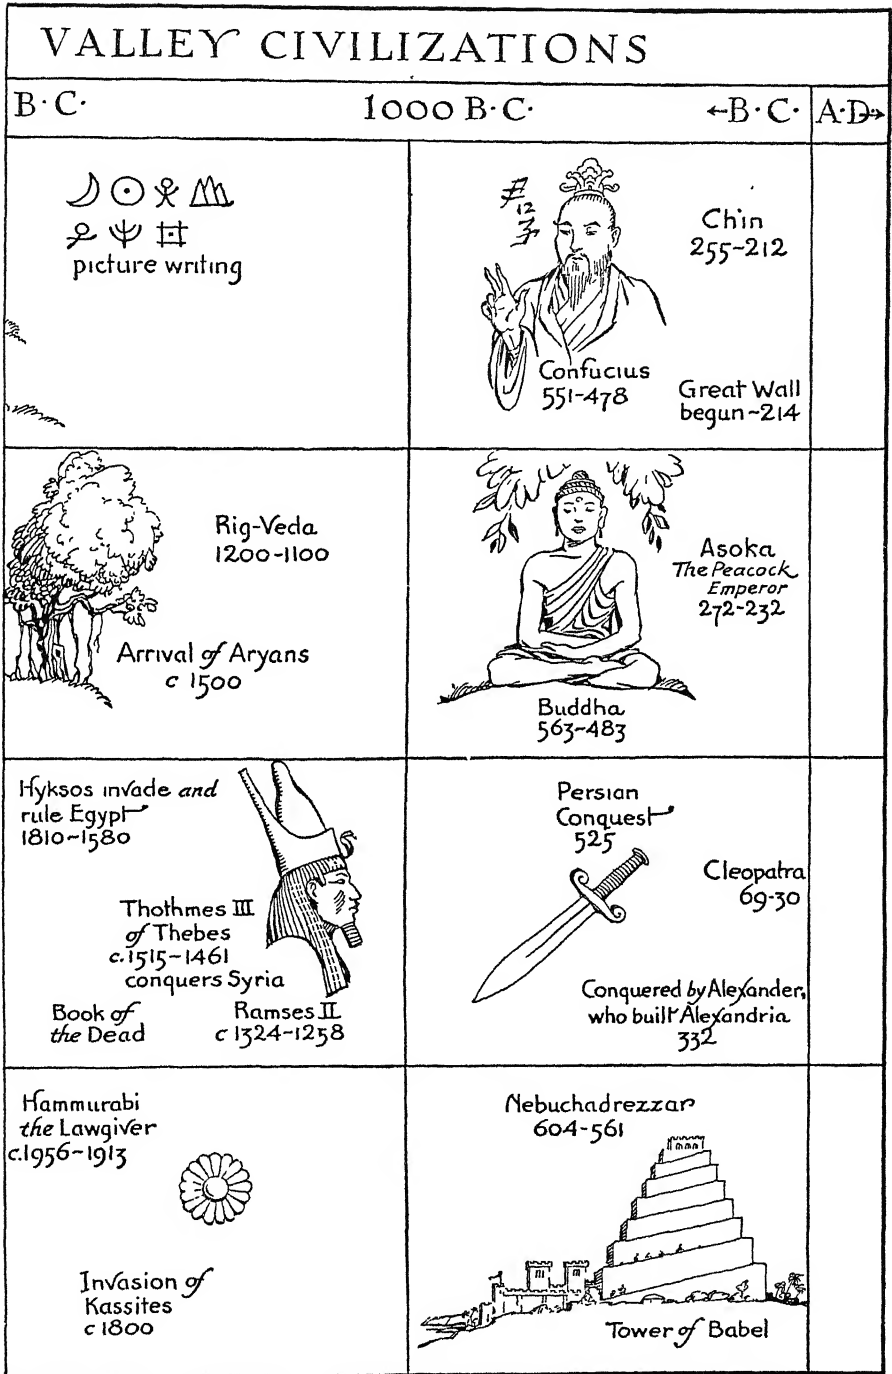 VALLEY CIVILIZATIONS
B·C· 1000 B·C· ←B·C· A·D→
picture writing
12
Ch'in
255~212
Confucius
551-478
Great Wall
begun~214
Rig-Veda
1200-1100
Arrival of Aryans
c 1500
Asoka
The Peacock
Emperor
272-232
Buddha
563~483
Hyksos invade and
rule Egypt
1810~1580
Thothmes III
of Thebes
c.1515~1461
conquers Syria
Book of
the Dead
Ramses II
c 1324~1258
Persian
Conquest
525
Cleopatra
69-30
Conquered by Alexander,
who built Alexandria
332
Hammurabi
the Lawgiver
c.1956~1913
Invasion of
Kassites
c 1800
Nebuchadrezzar
604-561
Tower of Babel